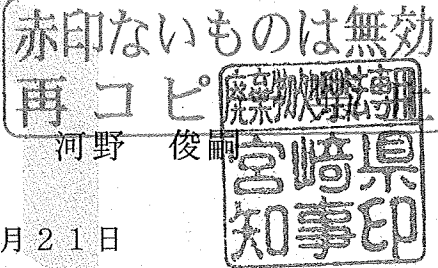 赤印ないものは無効
再コピ
廃棄物処理法専用
河野　俊嗣
宮崎県
知事印
月２１日